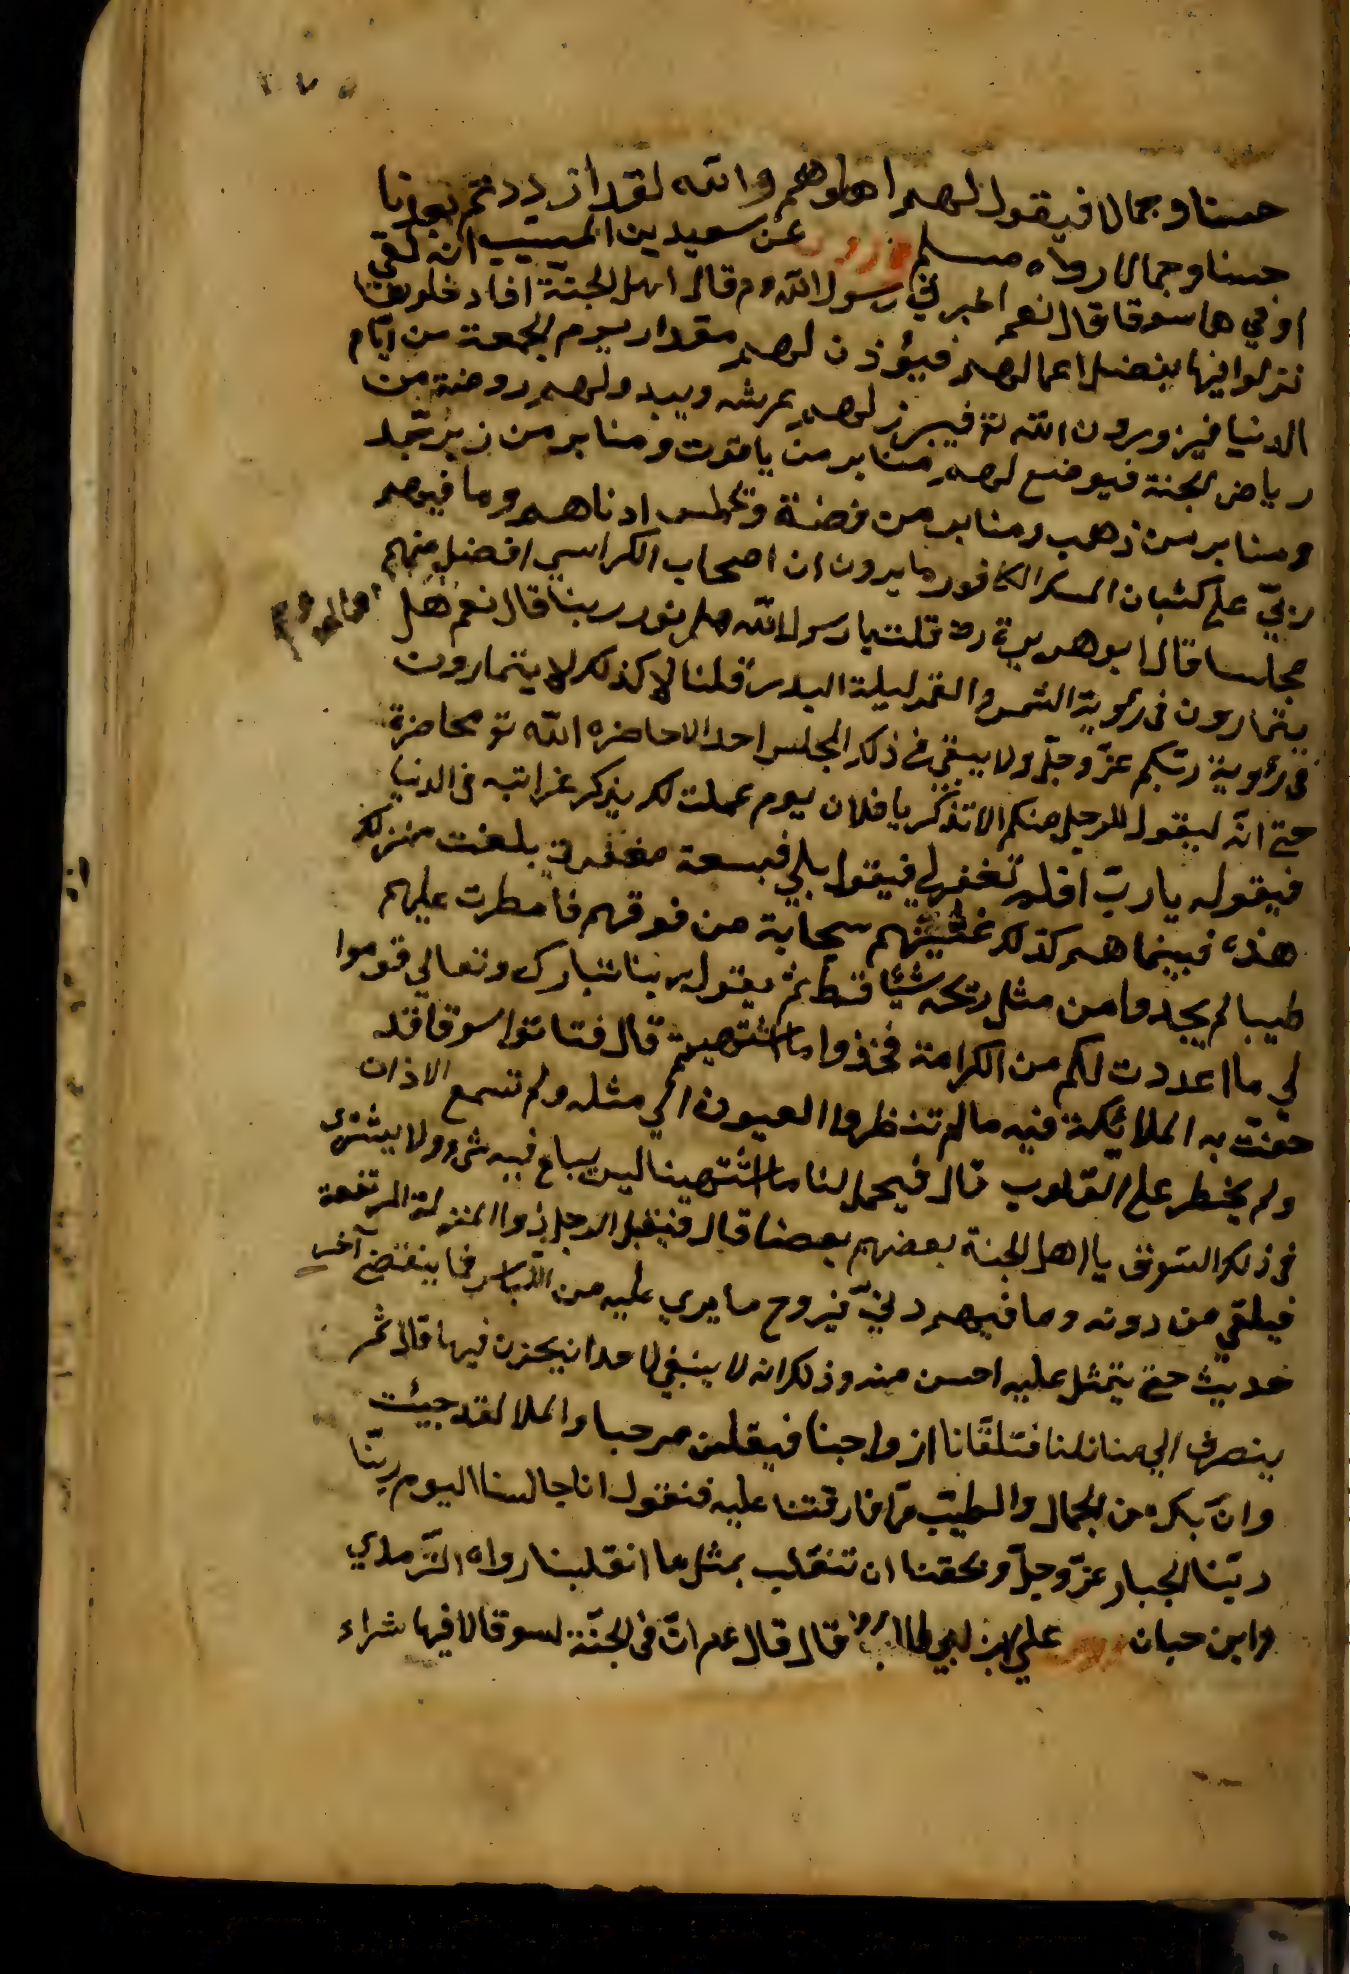 ٢٧٥
حسنا وجمالا فيقول لهم اهلوهم والله لقد ازددتم بعدنا
حسنا وجمالا رواه مسلم عن سعيد بن المسيب انه لقي
او في ها سوقا قال نعم اخبرني رسول الله قال اهل الجنة اذا دخلوها
نزلوا فيها بفضل اعمالهم فيؤذن لهم مقدار يوم الجمعة من ايّام
الدنيا فيزورون الله تع فيبرز لهم عرشه ويبدو لهم روضة من
رياض الجنة فيوضع لهم منابر من ياقوت ومنابر من زبرجد
ومنابر من ذهب ومنابر من فضة ويجلس ادناهم وما فيهم
دنيّ على كثبان المسك الكافور ما يرون ان اصحاب الكراسي افضل منهم
مجلسا قال ابو هريرة رض قلت يا رسول الله هل نرى ربنا قال نعم هل
يتمارون في رؤية الشمس والقمر ليلة البدر قلنا لا كذلك لا يتمارون
في رؤية ربّكم عزّ وجلّ ولا يبقى في ذلك المجلس احد الا حاضره الله تع محاضرة
حتى انّه ليقول للرجل منكم الا تذكر يا فلان يوم عملت لك يذكر غدراته في الدنيا
فيقول يا ربّ افلم تغفر لي فيقول بلى فبسعة مغفرتي بلغت منزلك
هذه فبينما هم كذلك غشيتهم سحابة من فوقهم فامطرت عليهم
طيبا لم يجدوا من مثل ريحه شيئا قط ثم يقول ربنا تبارك وتعالى قوموا
لي ما اعددت لكم من الكرامة فخذوا ما اشتهيتم قال فتاتوا سوقا قد
حفّت به الملائكة فيه ما لم تنظروا العيون الى مثله ولم تسمع الاذان
ولم يخطر على القلوب قال فيحمل لنا ما اشتهينا ليس يباع فيه شيء ولا يشترى
في ذلك السّوق يا اهل الجنة بعضهم بعضا قال فيقبل الرجل ذوا المنزلة المرتفعة
فيلقى من دونه وما فيهم دنيّ فيروع ما يرى عليه من اللباس فما ينقضي آخر
حديث حتى يتمثل عليه احسن منه وذلك انه لا ينبغي لاحد ان يحزن فيها قال ثم
ينصرف الى منازلنا فتلقّانا ازواجنا فيقلن مرحبا واهلا لقد جيئت
وانّ بك من الجمال والطيّب مّا فارقتنا عليه فنقول انا جالسنا اليوم ربّنا
ربّنا الجبار عزّ وجلّ ويحقنا ان تنقلب بمثل ما انقلبنا رواه التّرمذي
وابن حبان علي بن ابي طالب رض قال قال عم انّ في الجنّة لسوقا لا فيها شراء